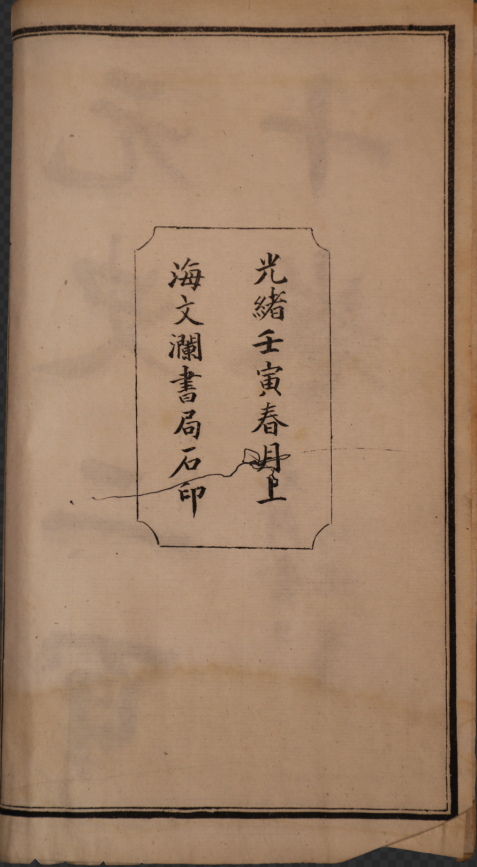 光緒壬寅春月上
海文瀾書局石印